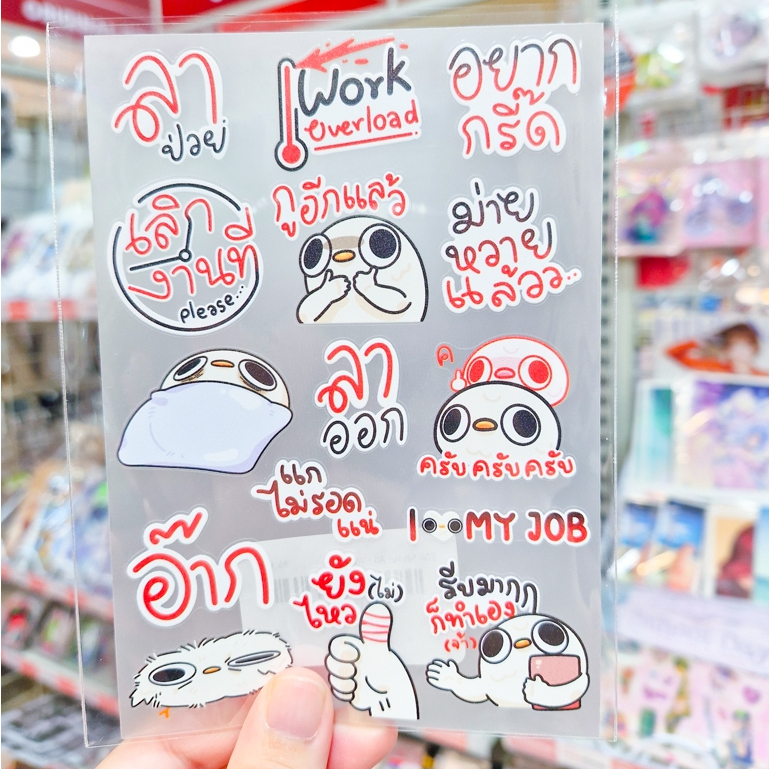 ลา
ป่วย
Work
Overload
อยาก
กรี๊ด
เลิก
งานที่
please...
กูอีกแล้ว
ม่าย
หวาย
แล้วว..
ลา
ออก
ค
ครับครับครับ
แก
ไม่รอด
แน่
I MY JOB
อ๊าก
ยัง(ไม่)
ไหว
รีบมากก
ก็ทำเอง
(จ้า)